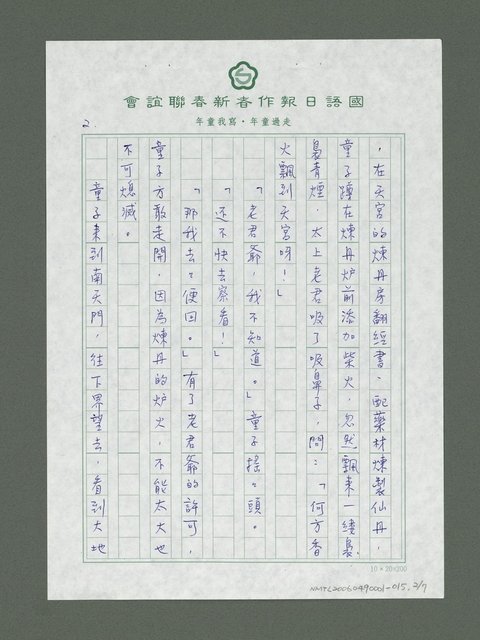 國語日報作者新春聯誼會
走過童年・寫我童年
2.
，在天宮的煉丹房翻經書、配藥材煉製仙丹，
童子蹲在煉丹炉前添加柴火，忽然飄來一縷裊
裊青煙，太上老君吸了吸鼻子，問：「何方香
火飄到天宮呀！」
「老君爺，我不知道。」童子搖搖頭。
「還不快去察看！」
「那我去去便回。」有了老君爺的許可，
童子方敢走開，因為煉丹的炉火，不能太大也
不可熄滅。
童子來到南天門，往下界望去，看到大地
10×20=200
NMTL20060490001-015, 2/7